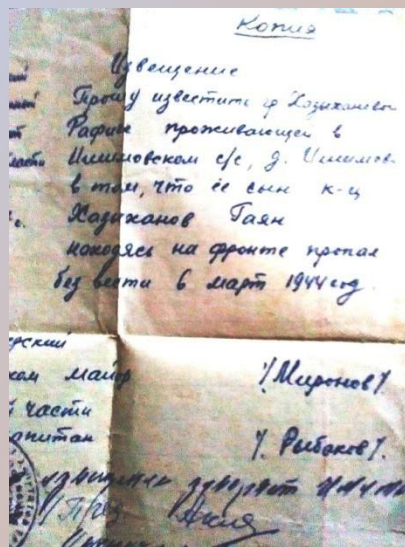 Копия
Извещение
Прошу известить гр Хазыханову
Рафие проживающей в
ласти Илимовском с/с, д. Илимов
в том, что её сын к-ц
Хазиханов Гаян
находясь на фронте пропал
без вести 6 март 1944 год.
рский
ком майор /Миронов/.
й части
апитан /. Рыбаков/.
заверяет